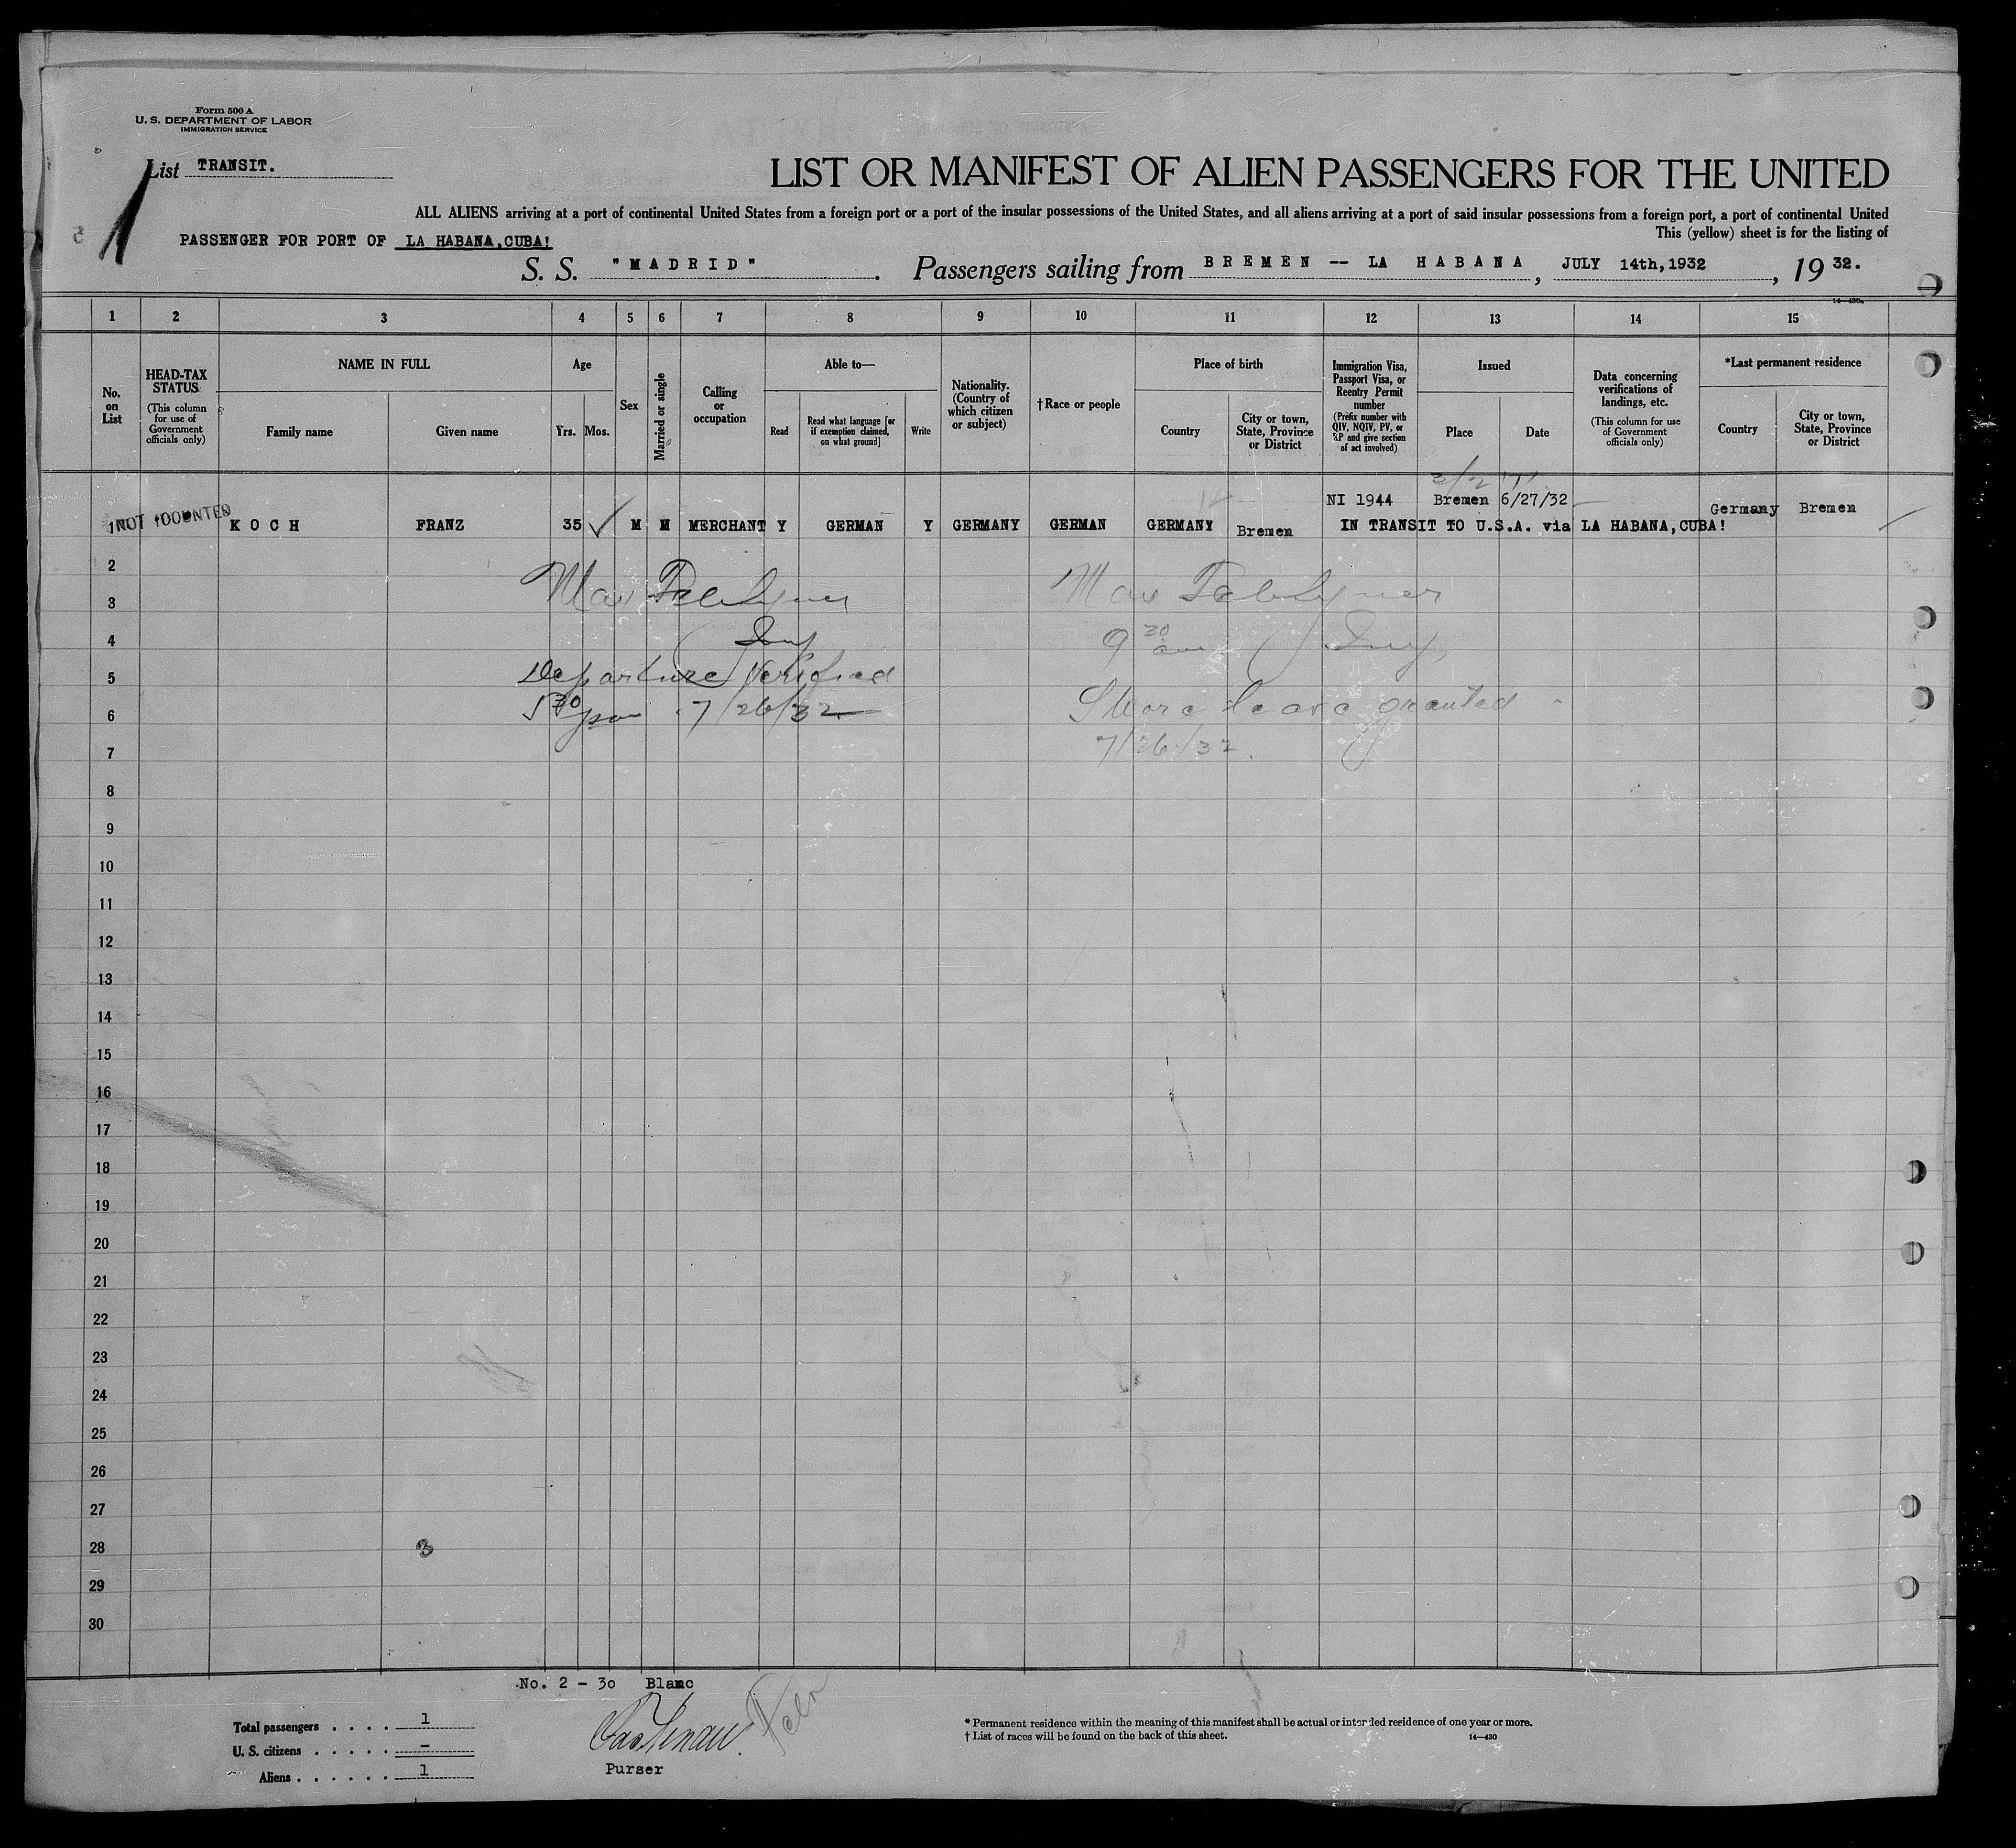 Form 500 A
U. S. DEPARTMENT OF LABOR
IMMIGRATION SERVICE
List TRANSIT.
1
LIST OR MANIFEST OF ALIEN PASSENGERS FOR THE UNITED
ALL ALIENS arriving at a port of continental United States from a foreign port or a port of the insular possessions of the United States, and all aliens arriving at a port of said insular possessions from a foreign port, a port of continental United
This (yellow) sheet is for the listing of
PASSENGER FOR PORT OF LA HABANA,CUBA!
S. S. "MADRID". Passengers sailing from BREMEN -- LA HABANA, JULY 14th,1932, 19 32.
14—430a
1 2 3 4 5 6 7 8 9 10 11 12 13 14 15
No. on List
HEAD-TAX STATUS (This column for use of Government officials only)
NAME IN FULL
Family name
Given name
Age
Yrs. Mos.
Sex
Married or single
Calling or occupation
Able to—
Read
Read what language [or if exemption claimed, on what ground]
Write
Nationality. (Country of which citizen or subject)
†Race or people
Place of birth
Country
City or town, State, Province or District
Immigration Visa, Passport Visa, or Reentry Permit number (Prefix number with QIV, NQIV, PV, or RP and give section of act involved)
Issued
Place
Date
Data concerning verifications of landings, etc. (This column for use of Government officials only)
*Last permanent residence
Country
City or town, State, Province or District
NI 1944 Bremen 6/27/32 Germany Bremen
1 KOCH FRANZ 35 M M MERCHANT Y GERMAN Y GERMANY GERMAN GERMANY Bremen IN TRANSIT TO U.S.A. via LA HABANA,CUBA!
2
3 Max Max
4 Insp 9 30 am Insp.
5 Departure Verified
6 5 30 pm 7/26/32 Shore leave granted
7 7/26/32.
8
9
10
11
12
13
14
15
16
17
18
19
20
21
22
23
24
25
26
27
28
29
30
No. 2 - 30 Blanc
Total passengers . . . . 1
U. S. citizens . . . . . —
Aliens . . . . . . 1
Purser
* Permanent residence within the meaning of this manifest shall be actual or intended residence of one year or more.
† List of races will be found on the back of this sheet.
14—430